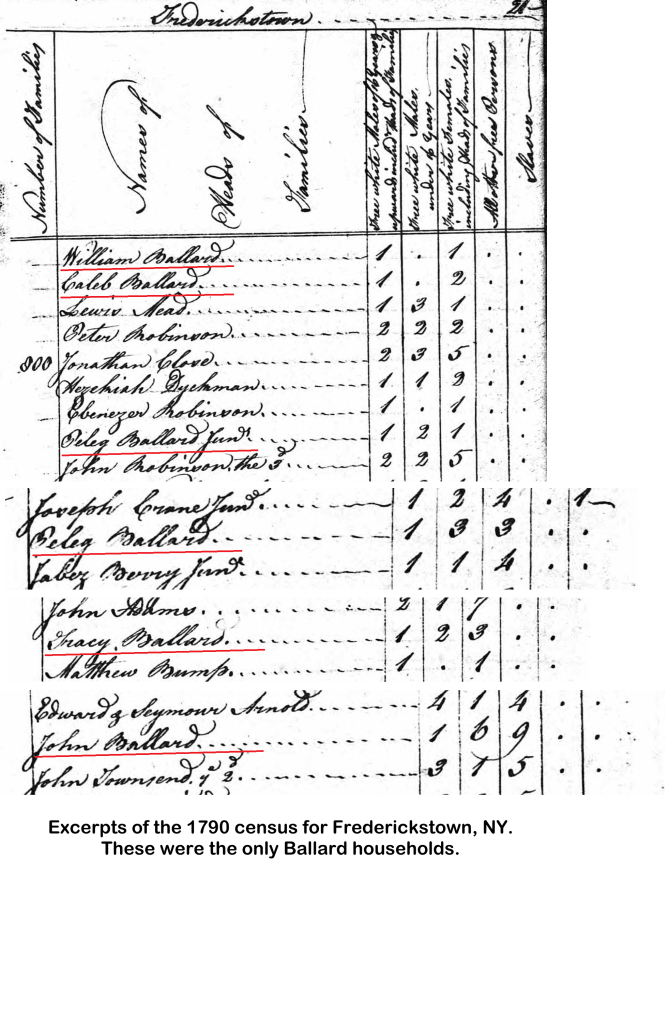 Frederickstown 21
Number of Families
Names of
Heads of
Families
Free white Males 16 Years &
upward includ.g Head of Families
Free white Males
under 16 Years
Free white Females,
including Head of Families
All other free Persons
Slaves
William Ballard 1 . 1 . .
Caleb Ballard 1 . 2 . .
Lewis Mead 1 3 1 . .
Peter Robinson 2 2 2 . .
800 Jonathan Close 2 3 5 . .
Hezekiah Dyckman 1 1 2 . .
Ebenezer Robinson 1 . 1 . .
Peleg Ballard Junr 1 2 1 . .
John Robinson the 3d 2 2 5 . .
Joseph Crane Junr 1 2 4 . 1
Peleg Ballard 1 3 3 . .
Jabez Berry Junr 1 1 4 . .
John Adams 2 1 7 . .
Tracy Ballard 1 2 3 . .
Matthew Bump 1 . 1 . .
Edward & Seymour Arnold 4 1 4 . .
John Ballard 1 6 9 . .
John Townsend ye 2d 3 1 5 . .
Excerpts of the 1790 census for Frederickstown, NY.
These were the only Ballard households.